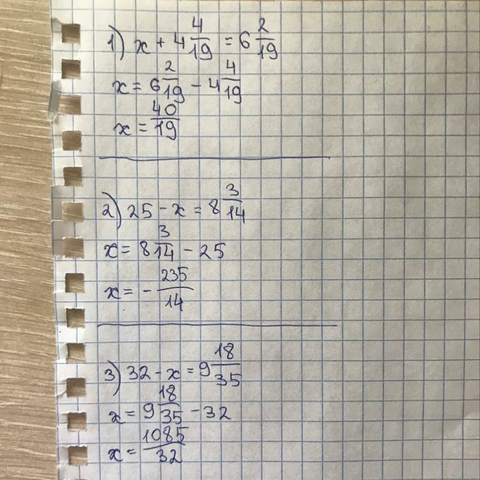 1) x + 4 4/19 = 6 2/19
x = 6 2/19 - 4 4/19
x = 40/19
2) 25 - x = 8 3/14
x = 8 3/14 - 25
x = - 235/14
3) 32 - x = 9 18/35
x = 9 18/35 - 32
x = 1085/32